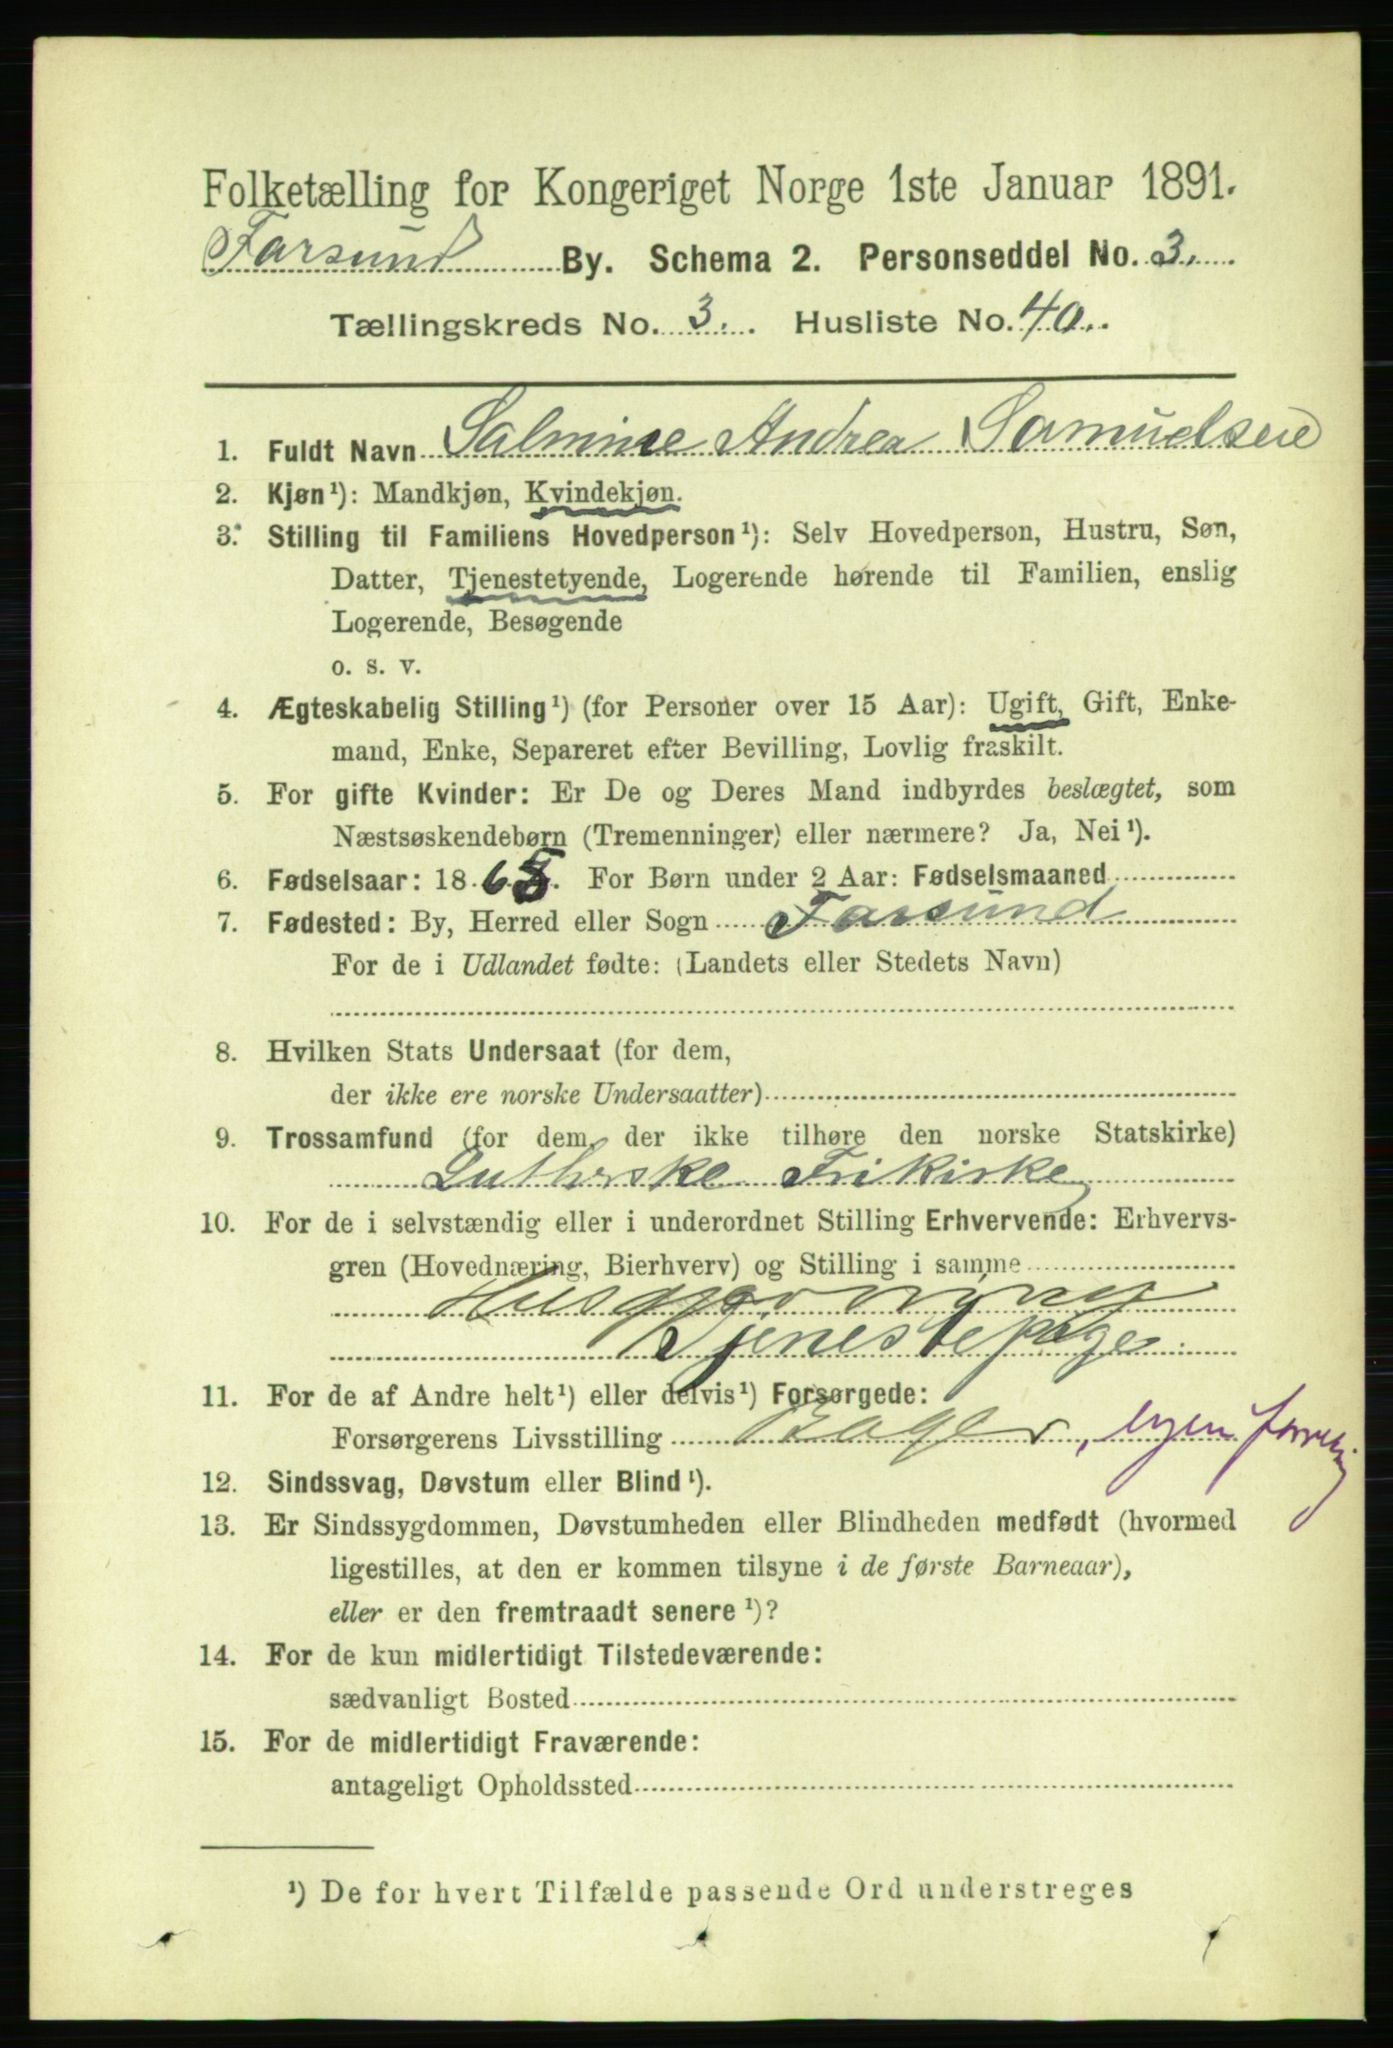 Folketælling for Kongeriget Norge 1ste Januar 1891.
Farsund By. Schema 2. Personseddel No. 3.
Tællingskreds No. 3. Husliste No. 40.
1. Fuldt Navn Salmine Andrea Samuelsen
2. Kjøn ¹): Mandkjøn, Kvindekjøn.
3. Stilling til Familiens Hovedperson ¹): Selv Hovedperson, Hustru, Søn,
Datter, Tjenestetyende, Logerende hørende til Familien, enslig
Logerende, Besøgende
o. s. v.
4. Ægteskabelig Stilling ¹) (for Personer over 15 Aar): Ugift, Gift, Enke-
mand, Enke, Separeret efter Bevilling, Lovlig fraskilt.
5. For gifte Kvinder: Er De og Deres Mand indbyrdes beslægtet, som
Næstsøskendebørn (Tremenninger) eller nærmere? Ja, Nei ¹).
6. Fødselsaar: 186 . For Børn under 2 Aar: Fødselsmaaned
7. Fødested: By, Herred eller Sogn Farsund
For de i Udlandet fødte: (Landets eller Stedets Navn)
8. Hvilken Stats Undersaat (for dem,
der ikke ere norske Undersaatter)
9. Trossamfund (for dem, der ikke tilhøre den norske Statskirke)
Lutherske Frikirke
10. For de i selvstændig eller i underordnet Stilling Erhvervende: Erhvervs-
gren (Hovednæring, Bierhverv) og Stilling i samme
Husgjerning
Tjenestepige.
11. For de af Andre helt ¹) eller delvis ¹) Forsørgede:
Forsørgerens Livsstilling Bager, egen forretning
12. Sindssvag, Døvstum eller Blind ¹).
13. Er Sindssygdommen, Døvstumheden eller Blindheden medfødt (hvormed
ligestilles, at den er kommen tilsyne i de første Barneaar),
eller er den fremtraadt senere ¹)?
14. For de kun midlertidigt Tilstedeværende:
sædvanligt Bosted
15. For de midlertidigt Fraværende:
antageligt Opholdssted
¹) De for hvert Tilfælde passende Ord understreges